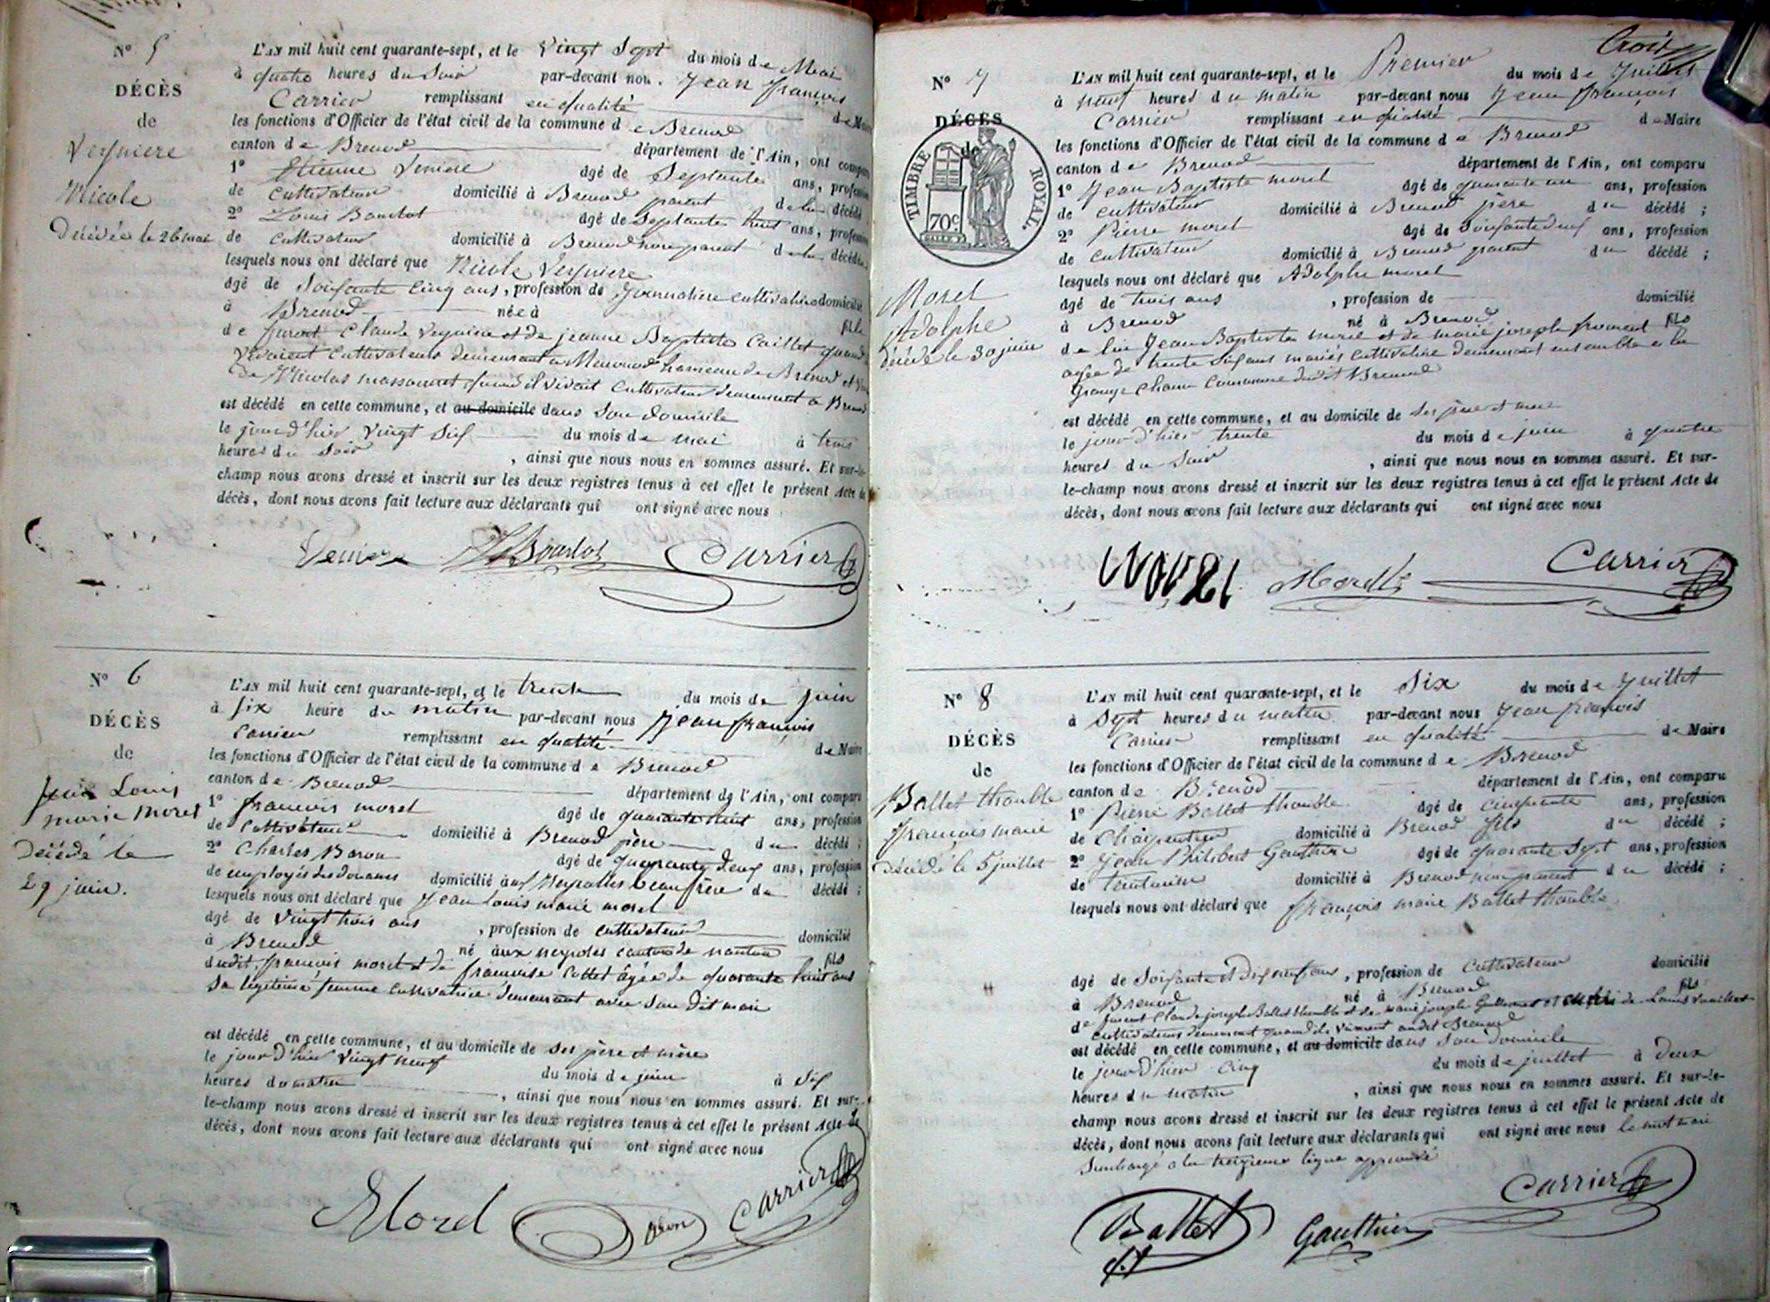 N° 5
DÉCÈS
de
Veyniere
Nicole
Décédée le 26 mai
L'AN mil huit cent quarante-sept, et le vingt sept du mois de Mai
à quatre heures du Soir par-devant nou. Jean françois
Carrier remplissant en qualité de Maire
les fonctions d'Officier de l'état civil de la commune de Brenod
canton de Brenod département de l'Ain, ont compa
1° Etienne âgé de Septante ans, profession
de cultivateur domicilié à Brenod parent de la décédé
2° Louis Bourlot âgé de Septante huit ans, profession
de cultivateur domicilié à Brenod non parent de la décédé
lesquels nous ont déclaré que Nicole Veyniere
âgé de Soixante cinq ans, profession de Journaliere cultivatrice domicilié
à Brenod née à fille
de furent Claude Veyniere et de jeanne Baptiste Caillet quand
vivaient cultivateurs demeurant a hameau de Brenod et
de Nicolas quand il vivait Cultivateur demeurant a Brenod
est décédé en cette commune, et au domicile dans Son domicile
le jour d'hier vingt Six du mois de mai à trois
heures du Soir , ainsi que nous nous en sommes assuré. Et sur-le-
champ nous avons dressé et inscrit sur les deux registres tenus à cet effet le présent Acte de
décès, dont nous avons fait lecture aux déclarants qui ont signé avec nous
Bourlot Carrier
N° 6
DÉCÈS
de
Jean Louis
marie Morel
Décédé le
29 juin.
L'AN mil huit cent quarante-sept, et le trente du mois de Juin
à six heure du matin par-devant nous Jean françois
Carrier remplissant en qualité de Maire
les fonctions d'Officier de l'état civil de la commune de Brenod
canton de Brenod département de l'Ain, ont comparu
1° francois morel âgé de quarante huit ans, profession
de Cultivateur domicilié à Brenod père du décédé ;
2° Charles Baron âgé de quarante deux ans, profession
de employé des douanes domicilié aux Neyrolles beau frère du décédé ;
lesquels nous ont déclaré que Jean Louis marie morel
âgé de vingt trois ans , profession de cultivateur domicilié
à Brenod né aux neyroles canton de nantua fils
dudit francois morel et de francoise Collet âgée de quarante huit ans
Sa légitime femme cultivatrice demeurant avec Son dit mari
est décédé en cette commune, et au domicile de Ses père et mère
le jour d'hier vingt neuf du mois de juin à Six
heures du matin , ainsi que nous nous en sommes assuré. Et sur-
le-champ nous avons dressé et inscrit sur les deux registres tenus à cet effet le présent Acte de
décès, dont nous avons fait lecture aux déclarants qui ont signé avec nous
Morel Baron Carrier
trois
N° 7
DÉCÈS
de
TIMBRE ROYAL.
70c
Morel
Adolphe
décédé le 30 juin
L'AN mil huit cent quarante-sept, et le Premier du mois de Juillet
à neuf heures du matin par-devant nous Jean françois
Carrier remplissant en qualité de Maire
les fonctions d'Officier de l'état civil de la commune de Brenod
canton de Brenod département de l'Ain, ont comparu
1° Jean Baptiste morel âgé de quarante un ans, profession
de cultivateur domicilié à Brenod père du décédé ;
2° Pierre morel âgé de Soixante neuf ans, profession
de cultivateur domicilié à Brenod parent du décédé ;
lesquels nous ont déclaré que Adolphe morel
âgé de trois ans , profession de domicilié
à Brenod né à Brenod fils
de lui Jean Baptiste morel et de marie joseph froment
agée de trente Six ans mariés cultivatrice demeurant ensemble a la
Grange Commune dudit Brenod
est décédé en cette commune, et au domicile de Ses père et mère
le jour d'hier trente du mois de juin à quatre
heures du Soir , ainsi que nous nous en sommes assuré. Et sur-
le-champ nous avons dressé et inscrit sur les deux registres tenus à cet effet le présent Acte de
décès, dont nous avons fait lecture aux déclarants qui ont signé avec nous
Carrier
N° 8
DÉCÈS
de
Ballet thouble
françois marie
Décédé le 5 juillet
L'AN mil huit cent quarante-sept, et le Six du mois de Juillet
à Sept heures du matin par-devant nous Jean françois
Carrier remplissant en qualité de Maire
les fonctions d'Officier de l'état civil de la commune de Brenod
canton de Brenod département de l'Ain, ont comparu
1° Pierre Ballet thouble âgé de cinquante ans, profession
de Charpentier domicilié à Brenod fils du décédé ;
2° Jean Philibert Gauthier âgé de quarante Sept ans, profession
de teinturier domicilié à Brenod non parent du décédé ;
lesquels nous ont déclaré que françois marie Ballet thouble
âgé de Soixante et Dix neuf ans , profession de Cultivateur domicilié
à Brenod né à Brenod fils
de furent Claude joseph Ballet thouble et de marie joseph
cultivateurs demeurant quand ils vivaient audit Brenod
est décédé en cette commune, et au domicile dans Son domicile
le jour d'hier cinq du mois de juillet à deux
heures du matin , ainsi que nous nous en sommes assuré. Et sur-le-
champ nous avons dressé et inscrit sur les deux registres tenus à cet effet le présent Acte de
décès, dont nous avons fait lecture aux déclarants qui ont signé avec nous le mot mari
Surchargé a la treizieme ligne approuvé
Ballet Gauthier Carrier